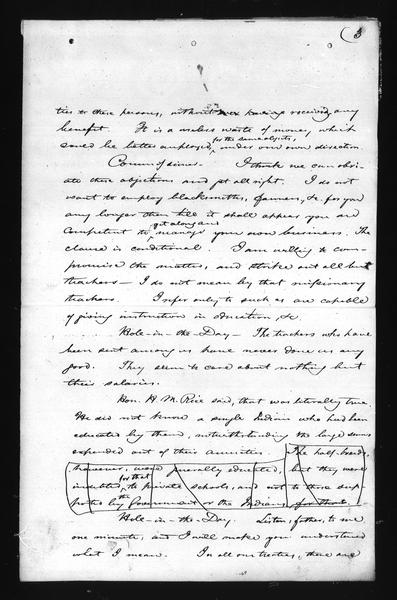 (3
ties to these persons, without ever having received any
benefit. It is a useless waste of money, which
could be better employed, for the same objects, under our own direction
Commissioner. I think we can obvi-
ate these objections and get all right. I do not
want to employ blacksmiths, farmers, &c. for you
any longer than till it shall appear you are
competent to get along and manage your own business. The
clause is conditional. I am willing to com-
promise the matter, and strike out all but
teachers — I do not mean by that missionary
teachers. I refer only to such as are capable
of giving instruction in education, &c.
Hole-in-the-Day — The teachers who have
been sent among us have never done us any
good. They seem to care about nothing but
their salaries.
Hon. H. M. Rice said, that was literally true.
He did not know a single Indian who had been
educated by them, notwithstanding the large sums
expended out of their annuities. The half-breeds,
however, were generally educated, but they were
indebted for that to private schools, and not to those sup-
ported by the Government or the Indians,
Hole-in-the-Day. Listen, father, to me
one minute, and I will make you understand
what I mean. In all our treaties, there are